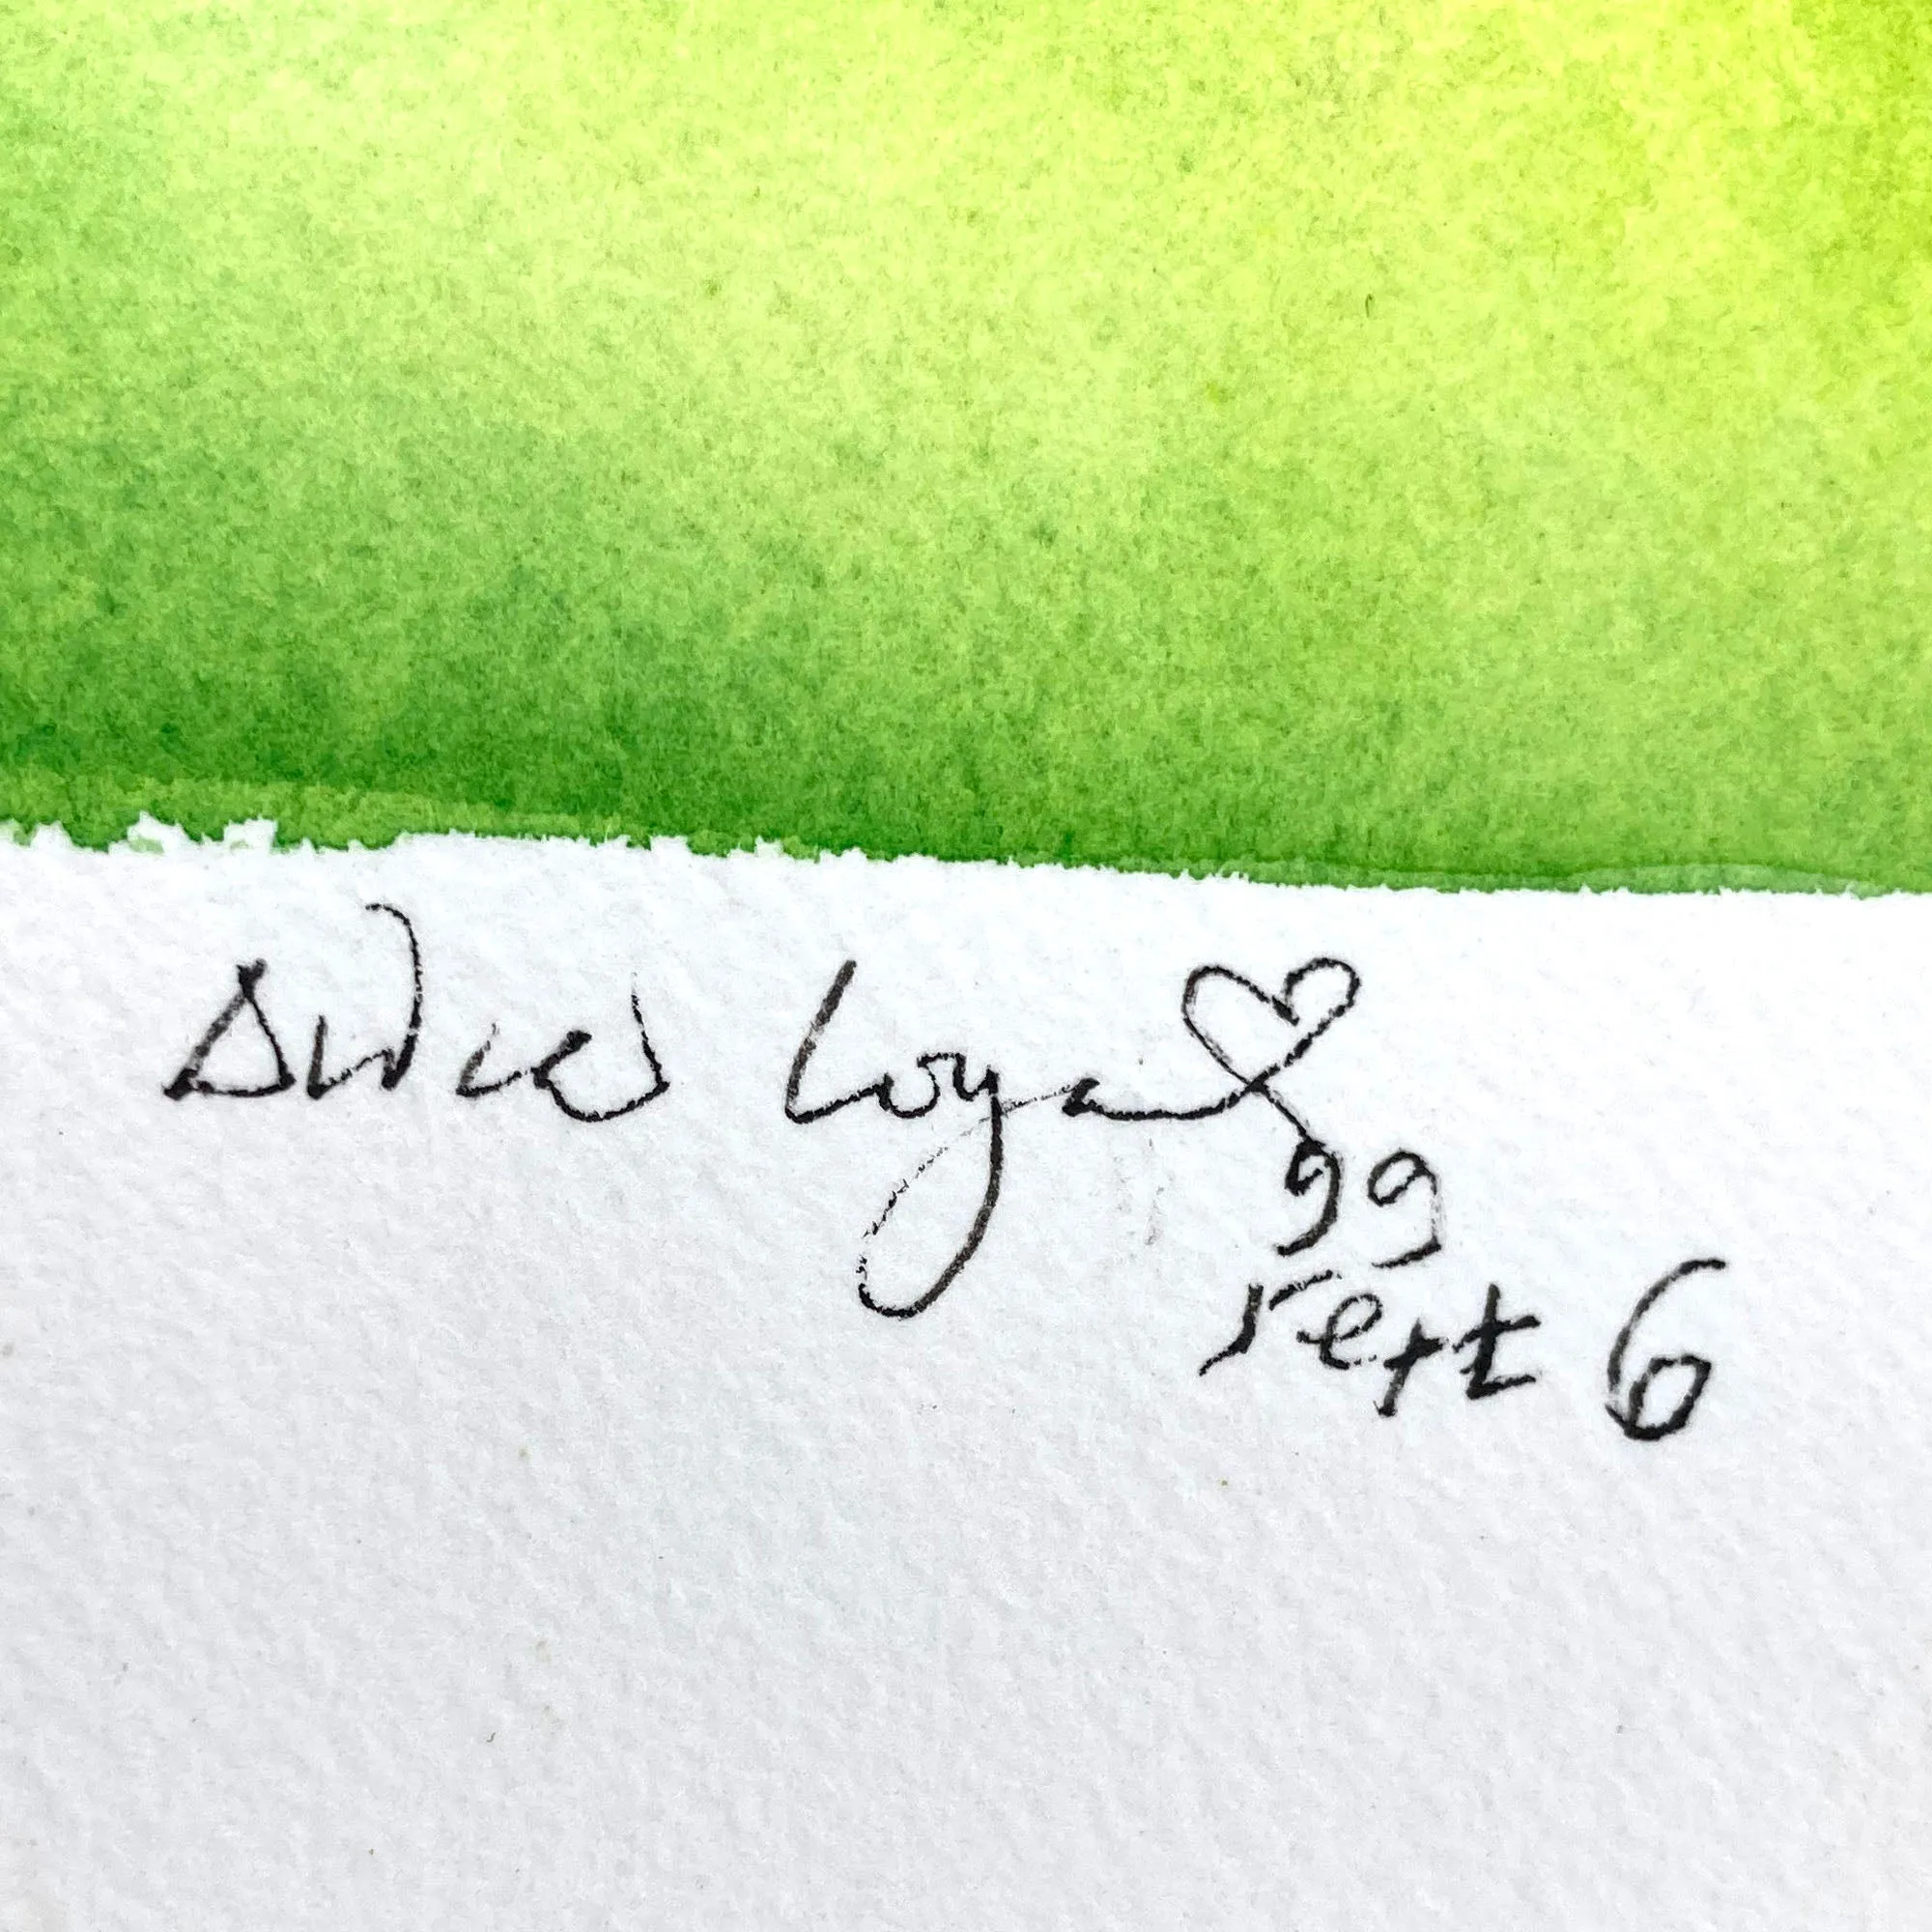 Loya
99
Sept 6